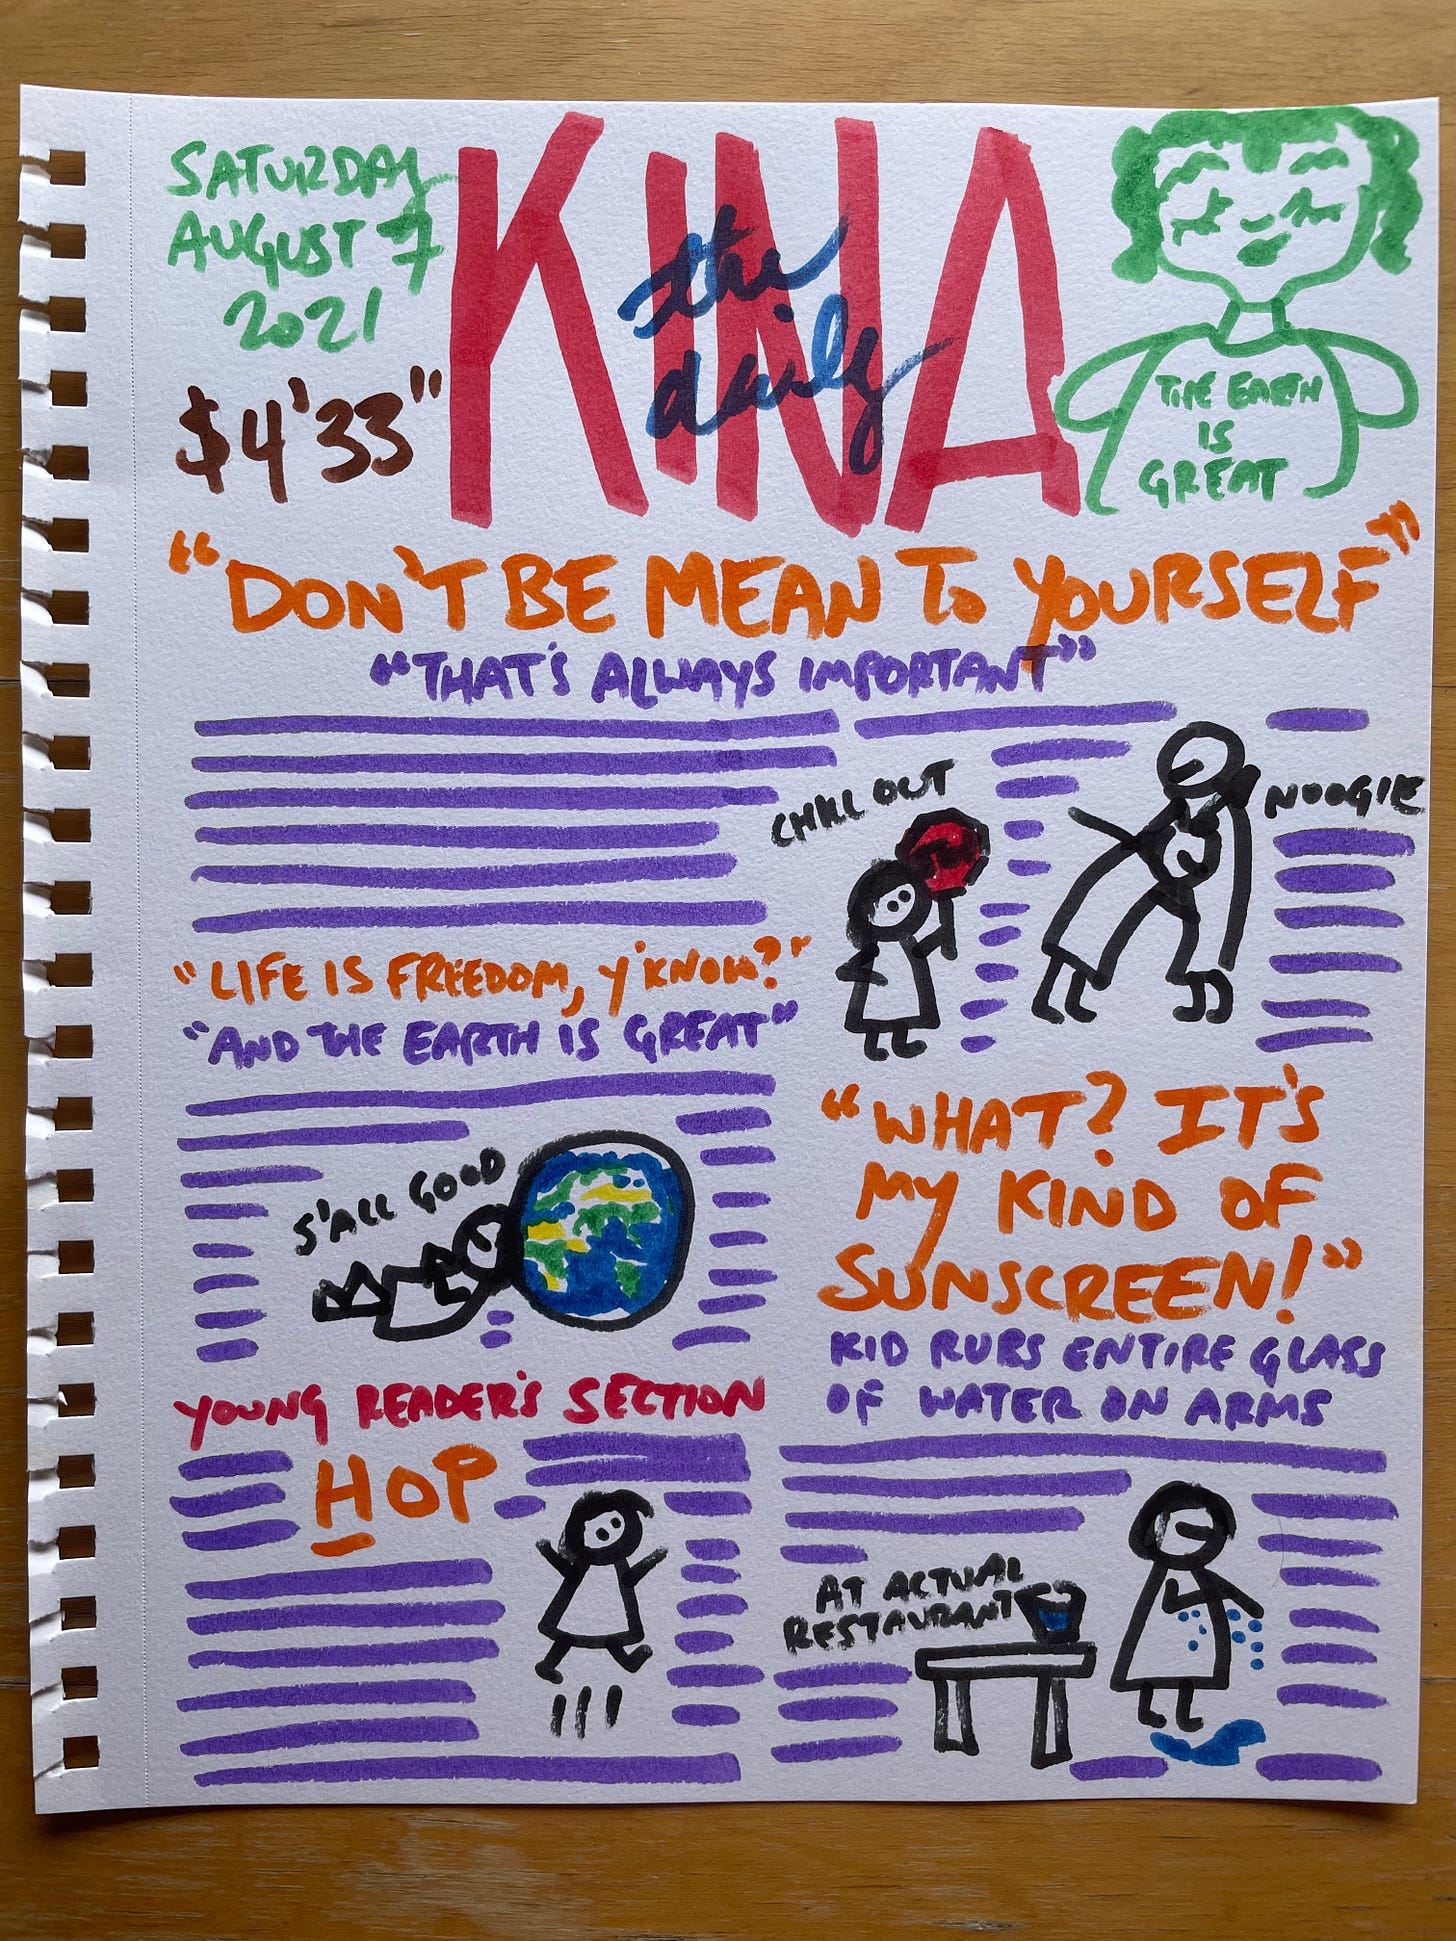 SATURDAY
AUGUST 7
2021
$4'33"
the
daily
KINA
THE EARTH
IS
GREAT
"DON'T BE MEAN TO YOURSELF"
"THAT'S ALWAYS IMPORTANT"
CHILL OUT
NOOGIE
"LIFE IS FREEDOM, Y'KNOW?"
"AND THE EARTH IS GREAT"
S'ALL GOOD
"WHAT? IT'S
MY KIND OF
SUNSCREEN!"
KID RUBS ENTIRE GLASS
OF WATER ON ARMS
AT ACTUAL
RESTAURANT
YOUNG READER'S SECTION
HOP